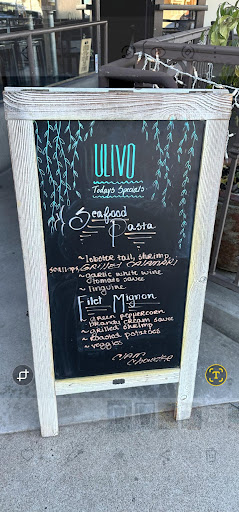 ULIVO
Today's Specials
Seafood
Pasta
~ lobster tail, shrimp
scallops, GRILLED CALAMARI
~ garlic white wine
tomato sauce
~ linguine
Filet Mignon
~ green peppercorn
brandy cream sauce
~ grilled shrimp
~ roasted potatoes
~ veggies
Clam
Chowder